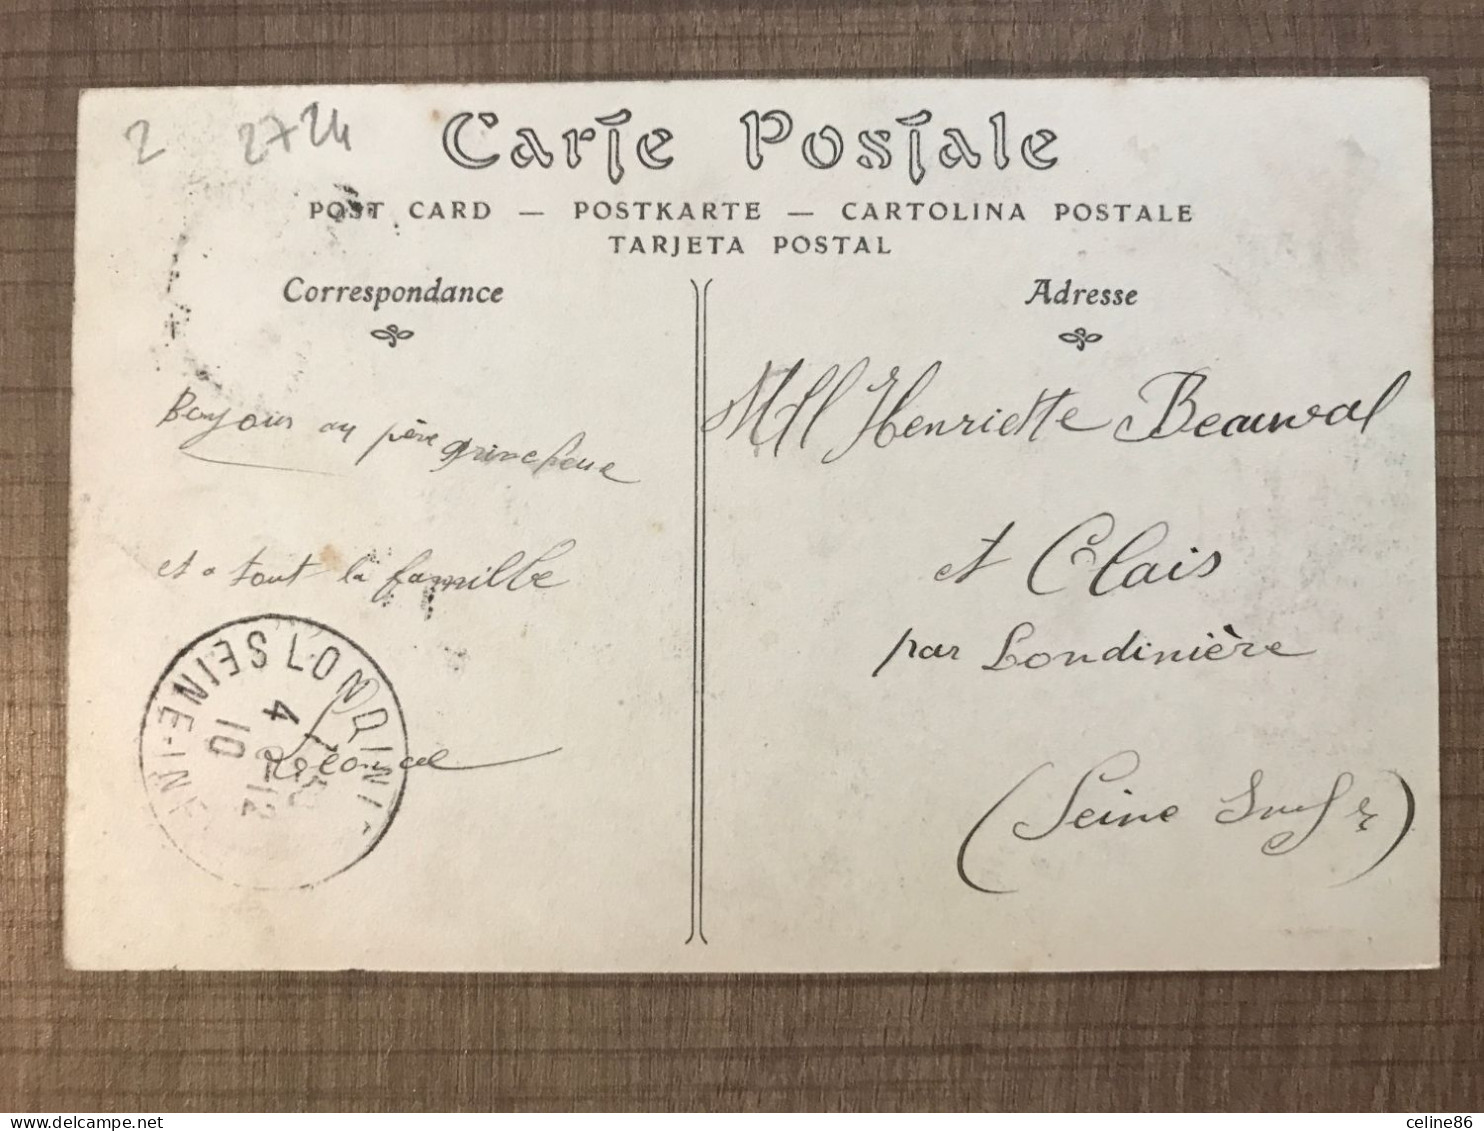 2 2724
Carte Postale
POST CARD — POSTKARTE — CARTOLINA POSTALE
TARJETA POSTAL
Correspondance
Bonjour au père grincheux
et a tout la famille
LONDINIÈ SEINE-INF
4
10
12
Adresse
Mll Henriette Beauval
et Clais
par Londinière
(Seine Infre)
celine86